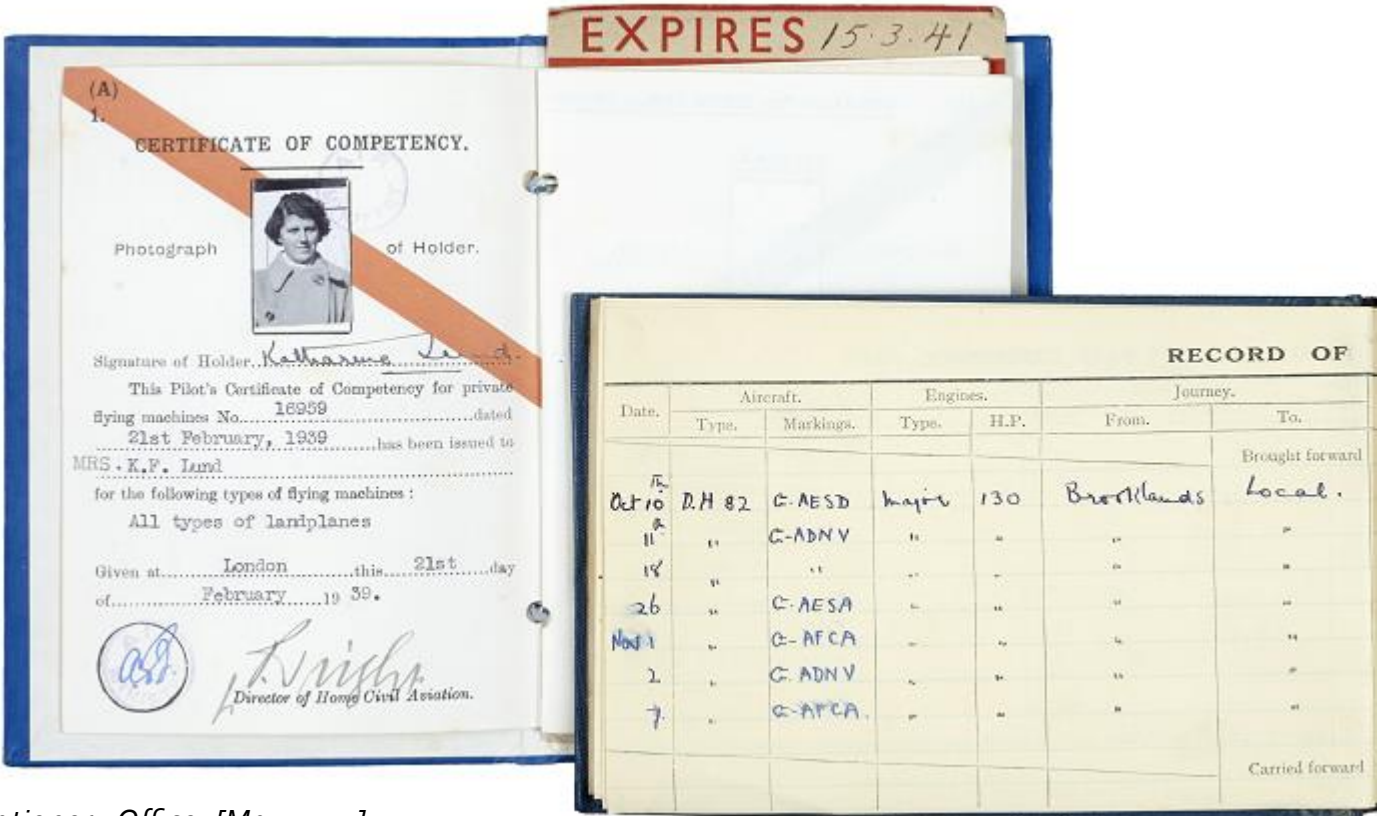 EXPIRES 15.3.41
(A)
1.
CERTIFICATE OF COMPETENCY.
Photograph of Holder.
Signature of Holder. Katharine Lund.
This Pilot's Certificate of Competency for private
flying machines No. 16959 dated
21st February, 1939 has been issued to
MRS. K.F. Lund
for the following types of flying machines :
All types of landplanes
Given at London this 21st day
of February 19 39.
Director of Home Civil Aviation.
RECORD OF
Date. Aircraft. Engines. Journey.
Type. Markings. Type. H.P. From. To.
Brought forward
Oct 10th D.H 82 G-AESD Major 130 Brooklands Local.
11 " G-ADNV " " " "
18 " " " " " "
26 " G-AESA " " " "
Nov 1 " G-AFCA " " " "
2 " G-ADNV " " " "
7. " G-AFCA. " " " "
Carried forward
Office